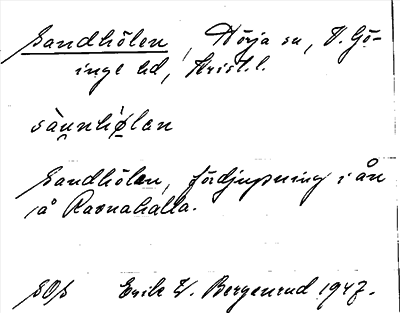 Sandhölen, Hörja sn, V. Gö-
inge hd, Krist. l.
sànnhı̣̀ølan
Sandhölen, fördjupning i ån
på Ravnahalla.
SOS Erik W. Bergenrud 1947.